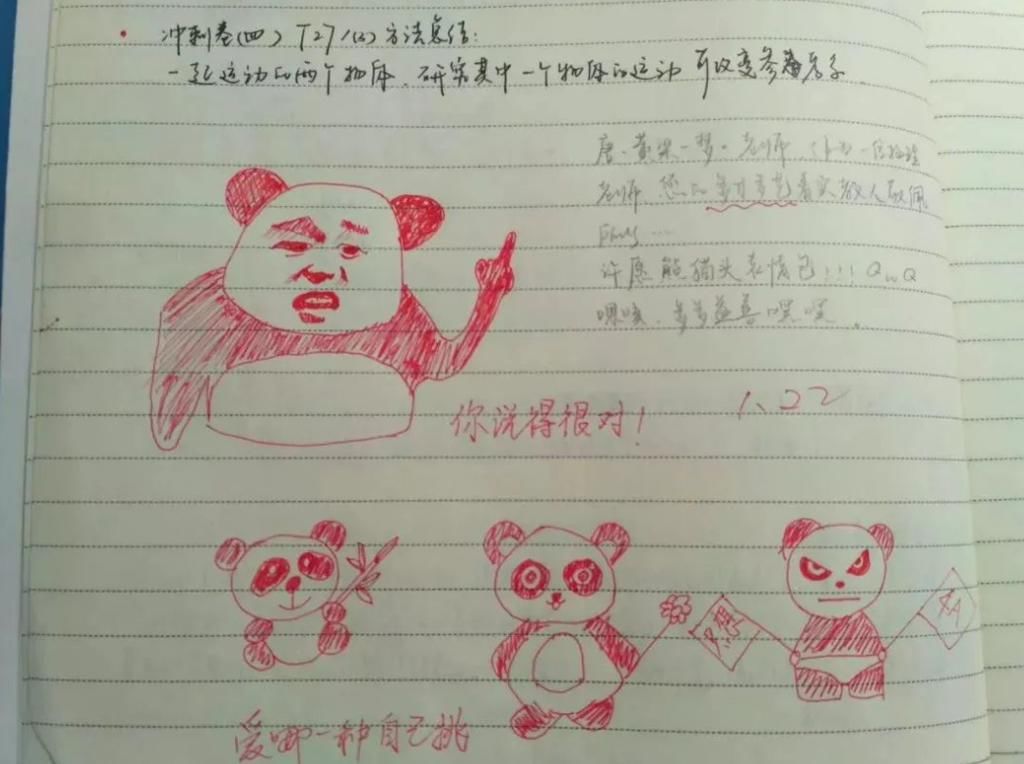 冲刺卷(四) T27(2) 方法总结:
一起运动的两个物体,研究其中一个物体的运动 可改变参考系
唐·黄粱一梦·老师,作为一位物理
老师,您的多才多艺着实教人敬佩
许愿熊猫头表情包!!!QwQ
嘿嘿,多多益善嘿嘿.
你说得很对!
1.22
爱哪一种自己挑